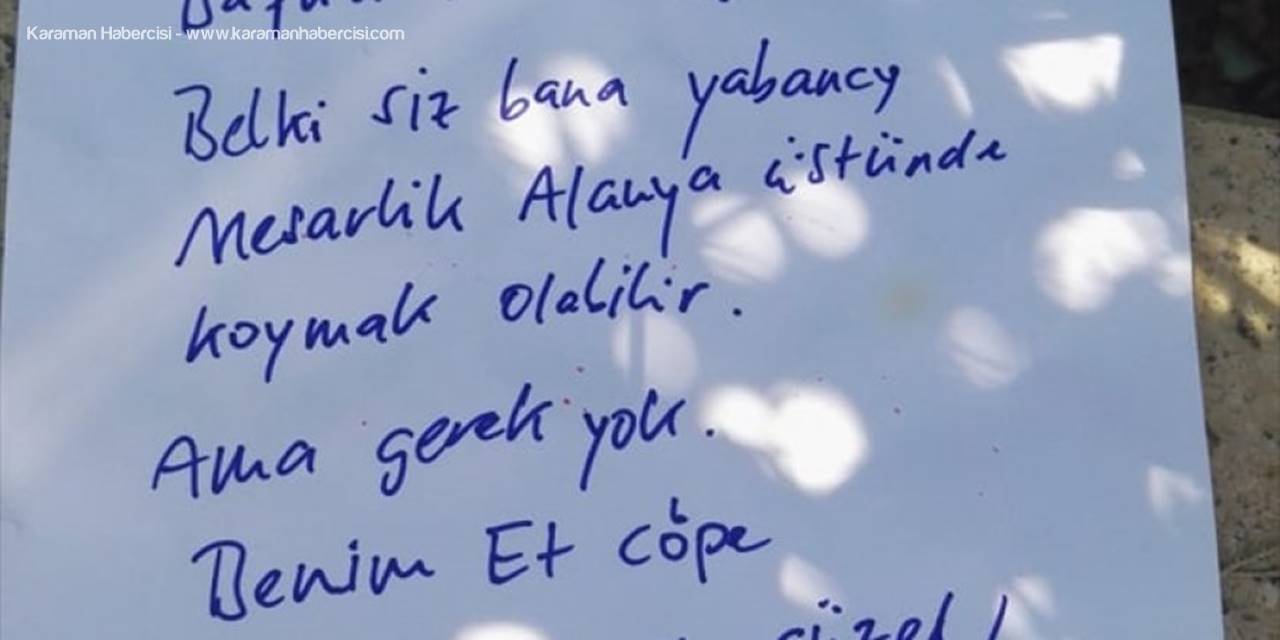 Karaman Habercisi - www.karamanhabercisi.com
Belki siz bana yabancy
Mesarlik Alanya üstünde
koymak olabilir.
Ama gerek yok.
Benim Et cöpe
güzel!